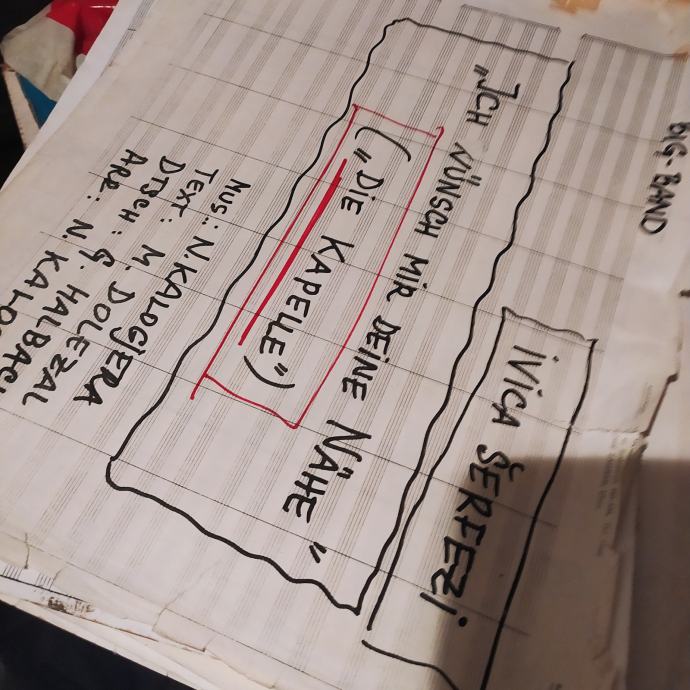 BIG-BAND
IVICA ŠERFEZI
„ICH WÜNSCH MIR DEINE NÄHE"
(„DIE KAPELLE")
MUS.: N. KALOGJERA
TEXT: M. DOLEZAL
DTSCH: G. HALBACH
ARR: N. KALO